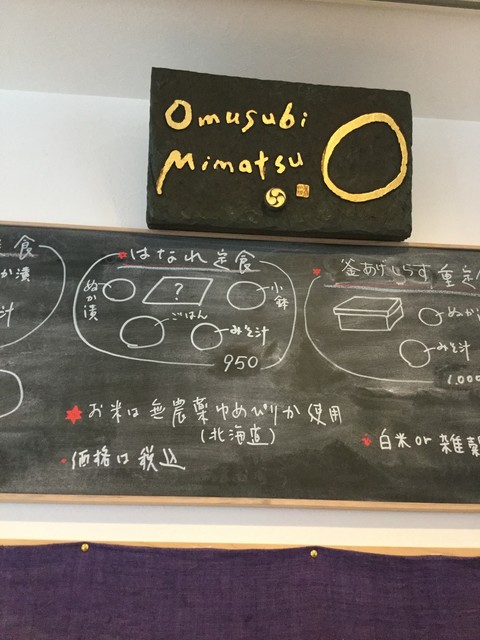 Omusubi
Mimatsu
食
か漬
汁
はなれ定食
ぬか漬
?
小鉢
ごはん
みそ汁
950
釜あげしらす重定
ぬか
みそ汁
1.000
お米は無農薬ゆめぴりか使用
(北海道)
価格は税込
白米or雑穀